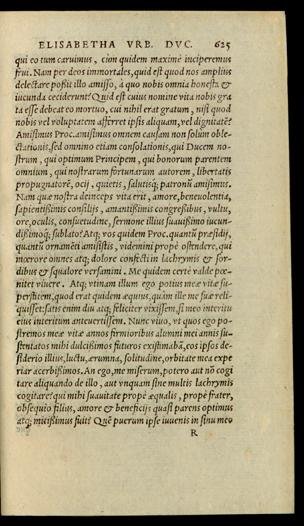 ELISABETHA VRB. DVC. 625
qui eo tum caruimus, cùm quidem maximè inciperemus
frui. Nam per deos immortales, quid est quod nos amplius
delectare possit illo amisso, à quo nobis omnia honesta &
iucunda ceciderunt? Quid est cuius nomine vita nobis gra
ta esse debeat eo mortuo, cui nihil erat gratum, nisi quod
nobis vel voluptatem afferret ipsis aliquam, vel dignitatẽ?
Amisimus Proc. amisimus omnem causam non solùm oble-
ctationis, sed omnino etiam consolationis, qui Ducem no-
strum, qui optimum Principem, qui bonorum parentem
omnium, qui nostrarum fortunarum autorem, libertatis
propugnatorẽ, ocij, quietis, salutisq; patronũ amisimus.
Nam quæ nostra deinceps vita erit, amore, beneuolentia,
sapientissimis consilijs, amantissimis congressibus, vultu,
ore, oculis, consuetudine, sermone illius suauissimo iucun-
dissimoq; sublato? Atq; vos quidem Proc. quantũ præsidij,
quantũ ornamẽti amisistis, videmini propè ostendere, qui
mœrore omnes atq; dolore confecti in lachrymis & sor-
dibus & squalore versamini. Me quidem certè valde pœ-
nitet viuere. Atq; vtinam illum ego potius meæ vitæ su-
perstitem, quod erat quidem æquius, quàm ille me suæ reli-
quisset: satis enim diu atq; feliciter vixissem, si meo interitu
eius interitum anteuertissem. Nunc viuo, vt quos ego po-
stremos meæ vitæ annos firmioribus alumni mei annis su-
stentatos mihi dulcissimos futuros existimabã, eos ipsos de-
siderio illius, luctu, ærumna, solitudine, orbitate mea expe
riar acerbissimos. An ego, me miserum, potero aut nõ cogi
tare aliquando de illo, aut vnquam sine multis lachrymis
cogitare? qui mihi suauitate propè æqualis, propè frater,
obsequio filius, amore & beneficijs quasi parens optimus
atq; mitissimus fuit? Quẽ puerum ipse iuuenis in sinu meo
R